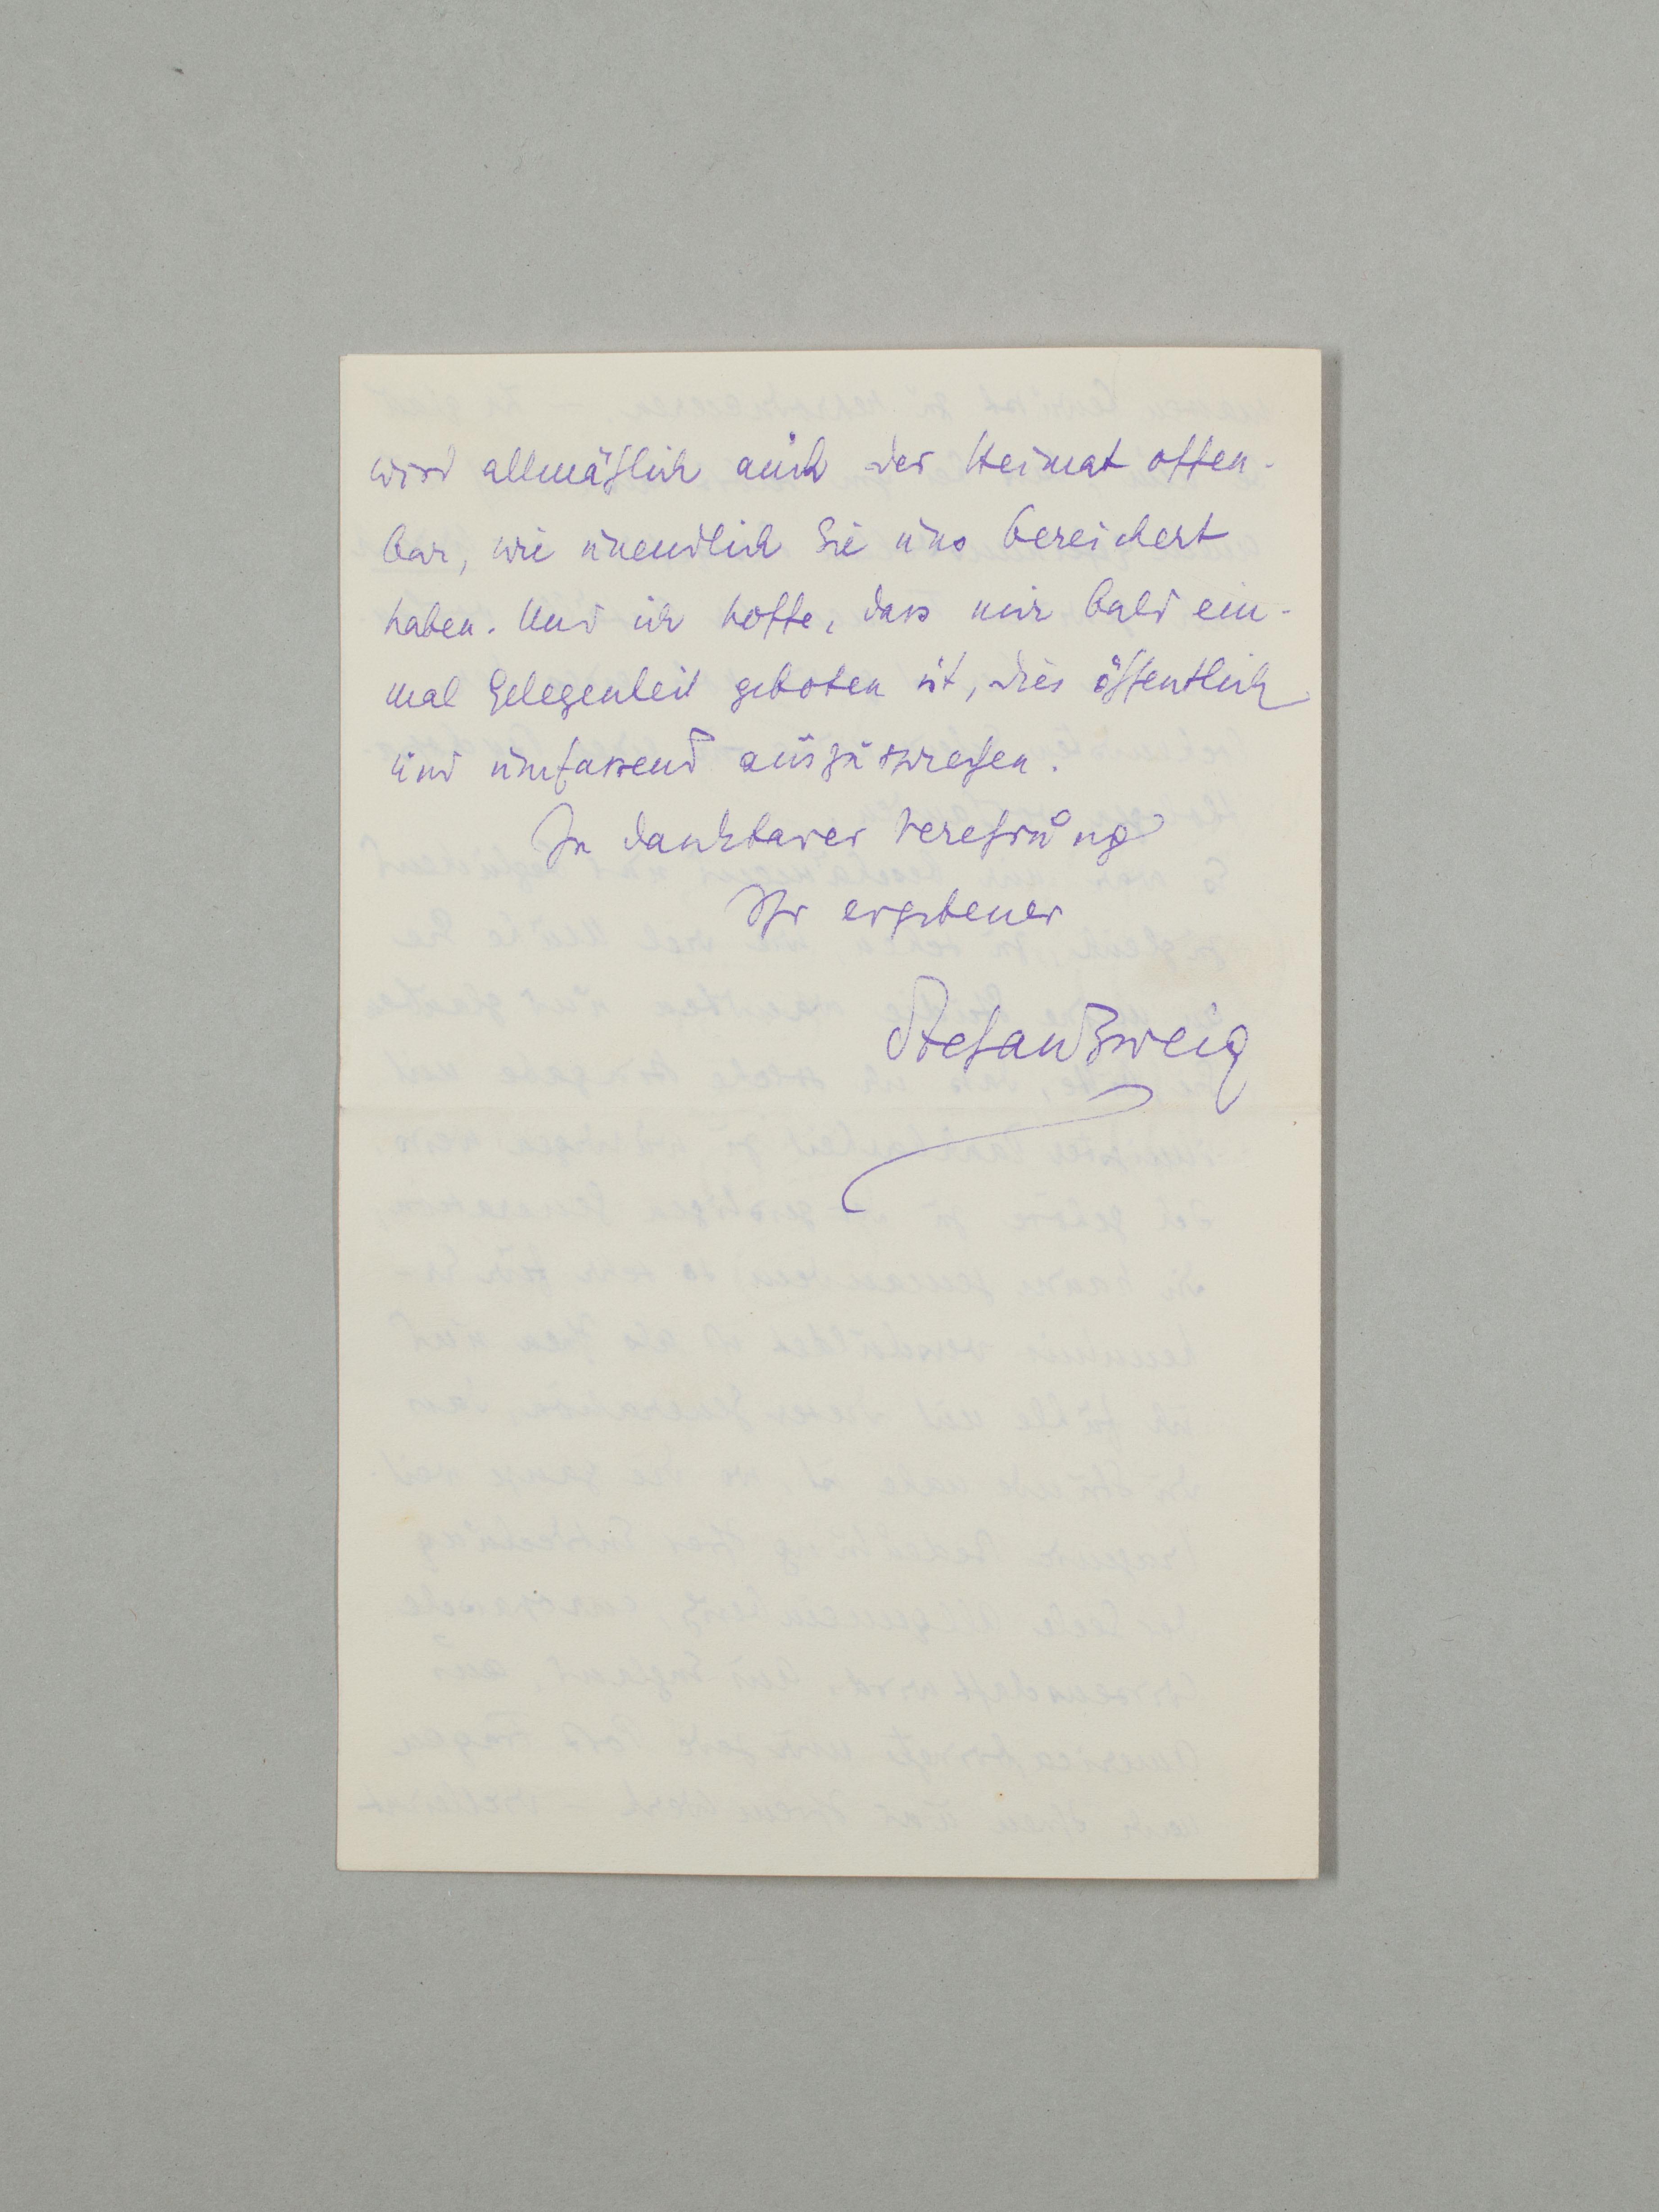 wird allmählich auch der Heimat offen-
bar, wie unendlich Sie uns bereichert
haben. Und ich hoffe, dass mir bald ein-
mal Gelegenheit geboten ist, dies öffentlich
und umfassend auszusprechen.
In dankbarer Verehrung
Ihr ergebener
Stefan Zweig